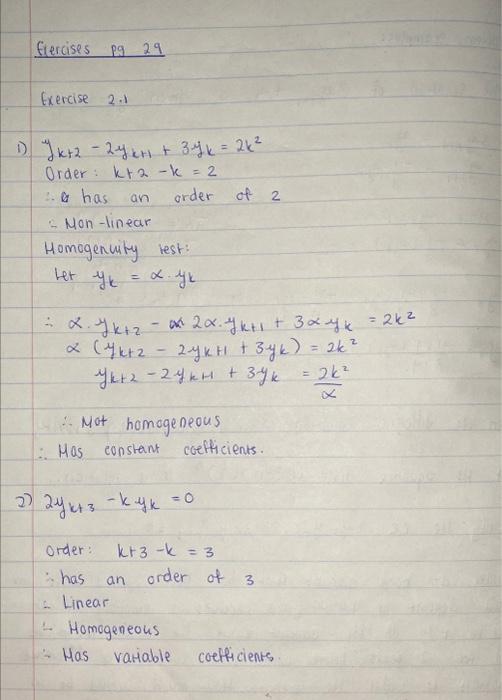 Exercises pg 29
Exercise 2.1
1) y_{k+2} - 2y_{k+1} + 3y_k = 2k²
Order: k+2 - k = 2
∴ has an order of 2
∴ Non-linear
Homogenuity test:
Let y_k = α.y_k
∴ α.y_{k+2} - 2α.y_{k+1} + 3α y_k = 2k²
α (y_{k+2} - 2y_{k+1} + 3y_k) = 2k²
y_{k+2} - 2y_{k+1} + 3y_k = 2k²/α
∴ Not homogeneous
∴ Has constant coefficients.
2) 2y_{k+3} - k y_k = 0
Order: k+3 - k = 3
∴ has an order of 3
∴ Linear
∴ Homogeneous
∴ Has variable coefficients.